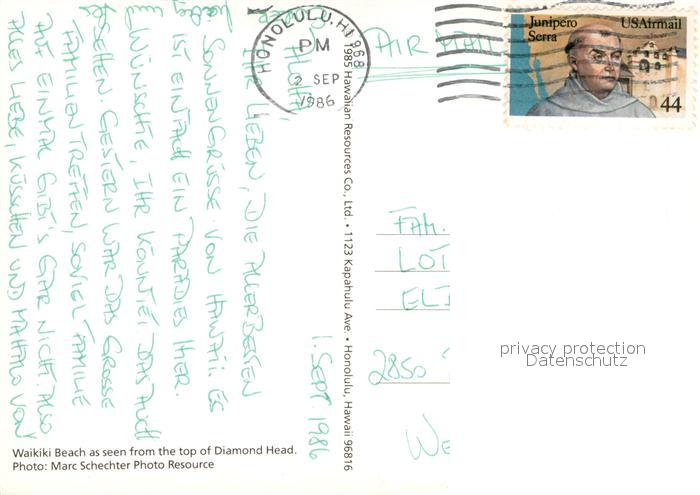 1. SEPT. 1986
ALOHA,
IHR LIEBEN, DIE ALLERBESTEN
SONNENGRÜSSE VON HAWAII. ES
IST EINFACH EIN PARADIES HIER.
WÜNSCHTE, IHR KÖNNTET DAS AUCH
SEHEN. GESTERN WAR DAS GROSSE
FAMILIENTREFFEN, SOVIEL FAMILIE
AUF EINMAL GIBT'S GAR NICHT. ALSO
ALLES LIEBE, KÜSSCHEN UND MAHALO VON
Waikiki Beach as seen from the top of Diamond Head.
Photo: Marc Schechter Photo Resource
1985 Hawaiian Resources Co., Ltd. • 1123 Kapahulu Ave. • Honolulu, Hawaii 96816
HONOLULU, HI 968
PM
2 SEP
1986
AIR MAIL
Junipero
Serra
USAirmail
44
FAM.
LOT
ELI
2850
WE
privacy protection
Datenschutz